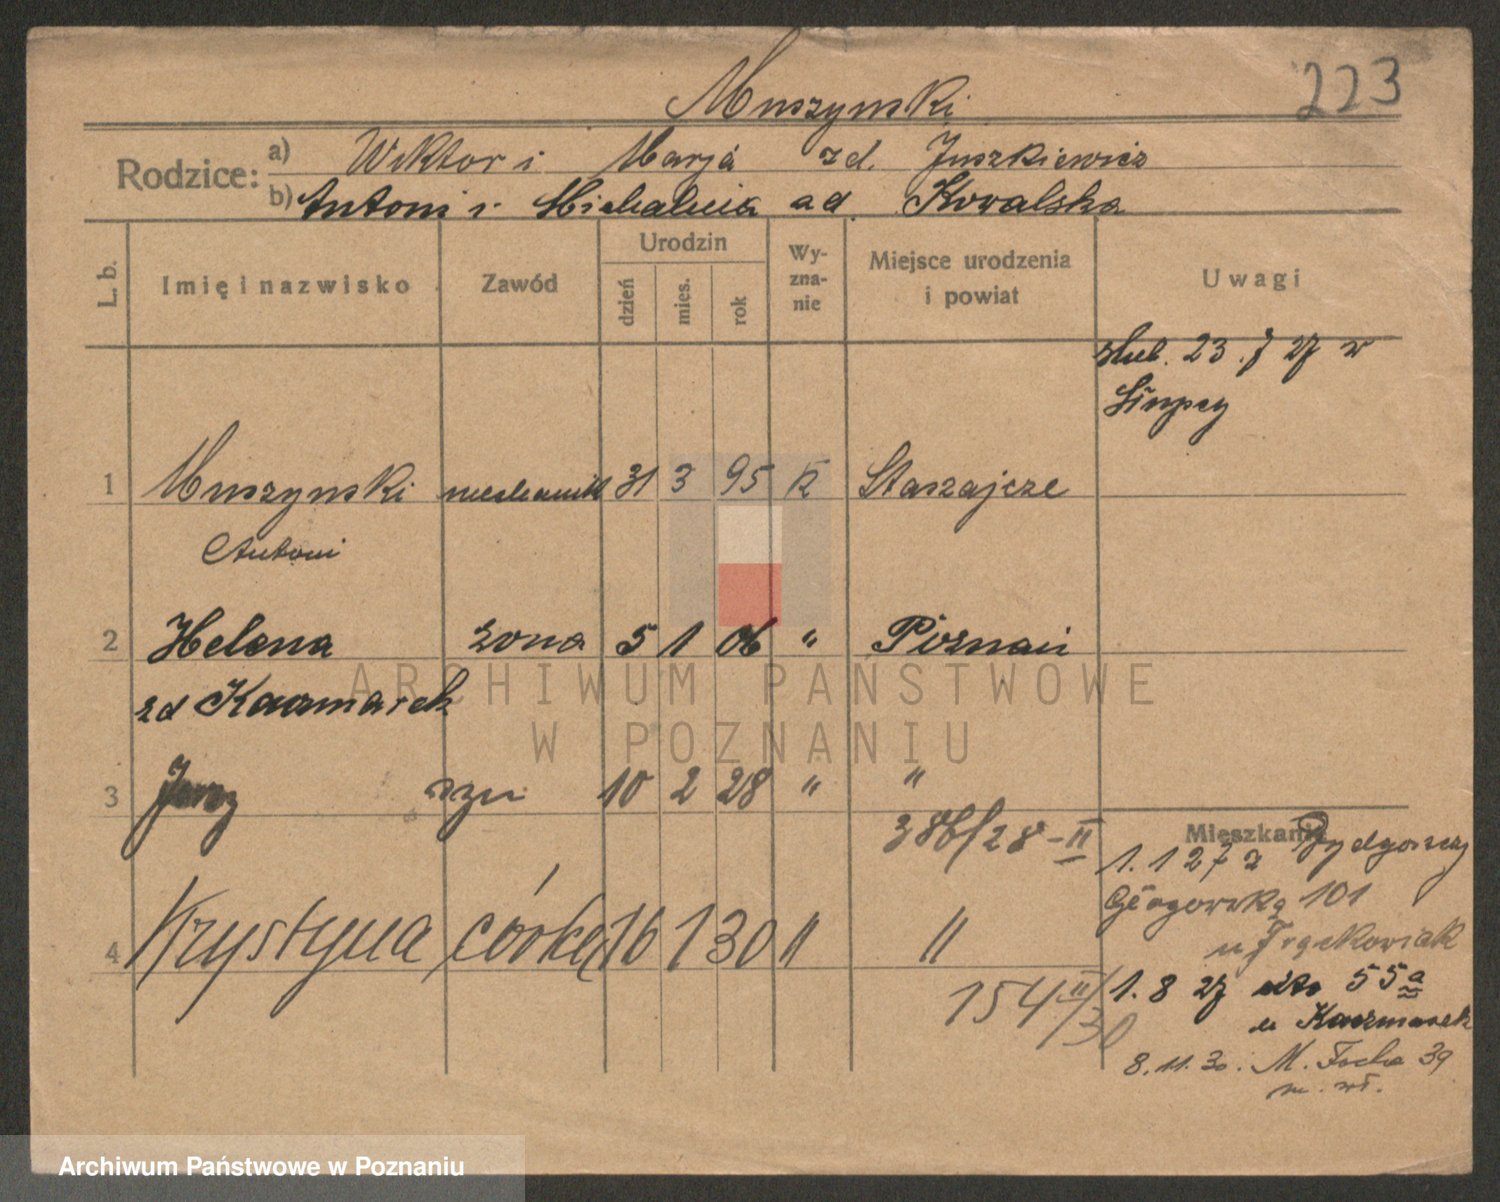 223
Muszynski
Rodzice: a) Wiktor i Marja zd. Juszkiewicz
b) Antoni i Michalina zd. Kowalska
L. b. Imię i nazwisko Zawód Urodzin dzień mies. rok Wy-zna-nie Miejsce urodzenia i powiat Uwagi
ślub. 23.7 27 w
1 Muszynski mechanik 31 3 95 K
Antoni
2 Helena żona 5 1 06 " Poznań
zd Kaczmarek
3 Jerzy syn 10 2 28 " "
386/28-II
4 Krystyna córka 16 1 30 " "
154 II/30
Mieszkanie
1.1 27 z Bydgoszczy
Głogowska 101
u Frąckowiak
1. 8 27 dto 55a
u Kaczmarek
8.11.30. M. Focha 39
m. wł.
ARCHIWUM PAŃSTWOWE
W POZNANIU
Archiwum Państwowe w Poznaniu